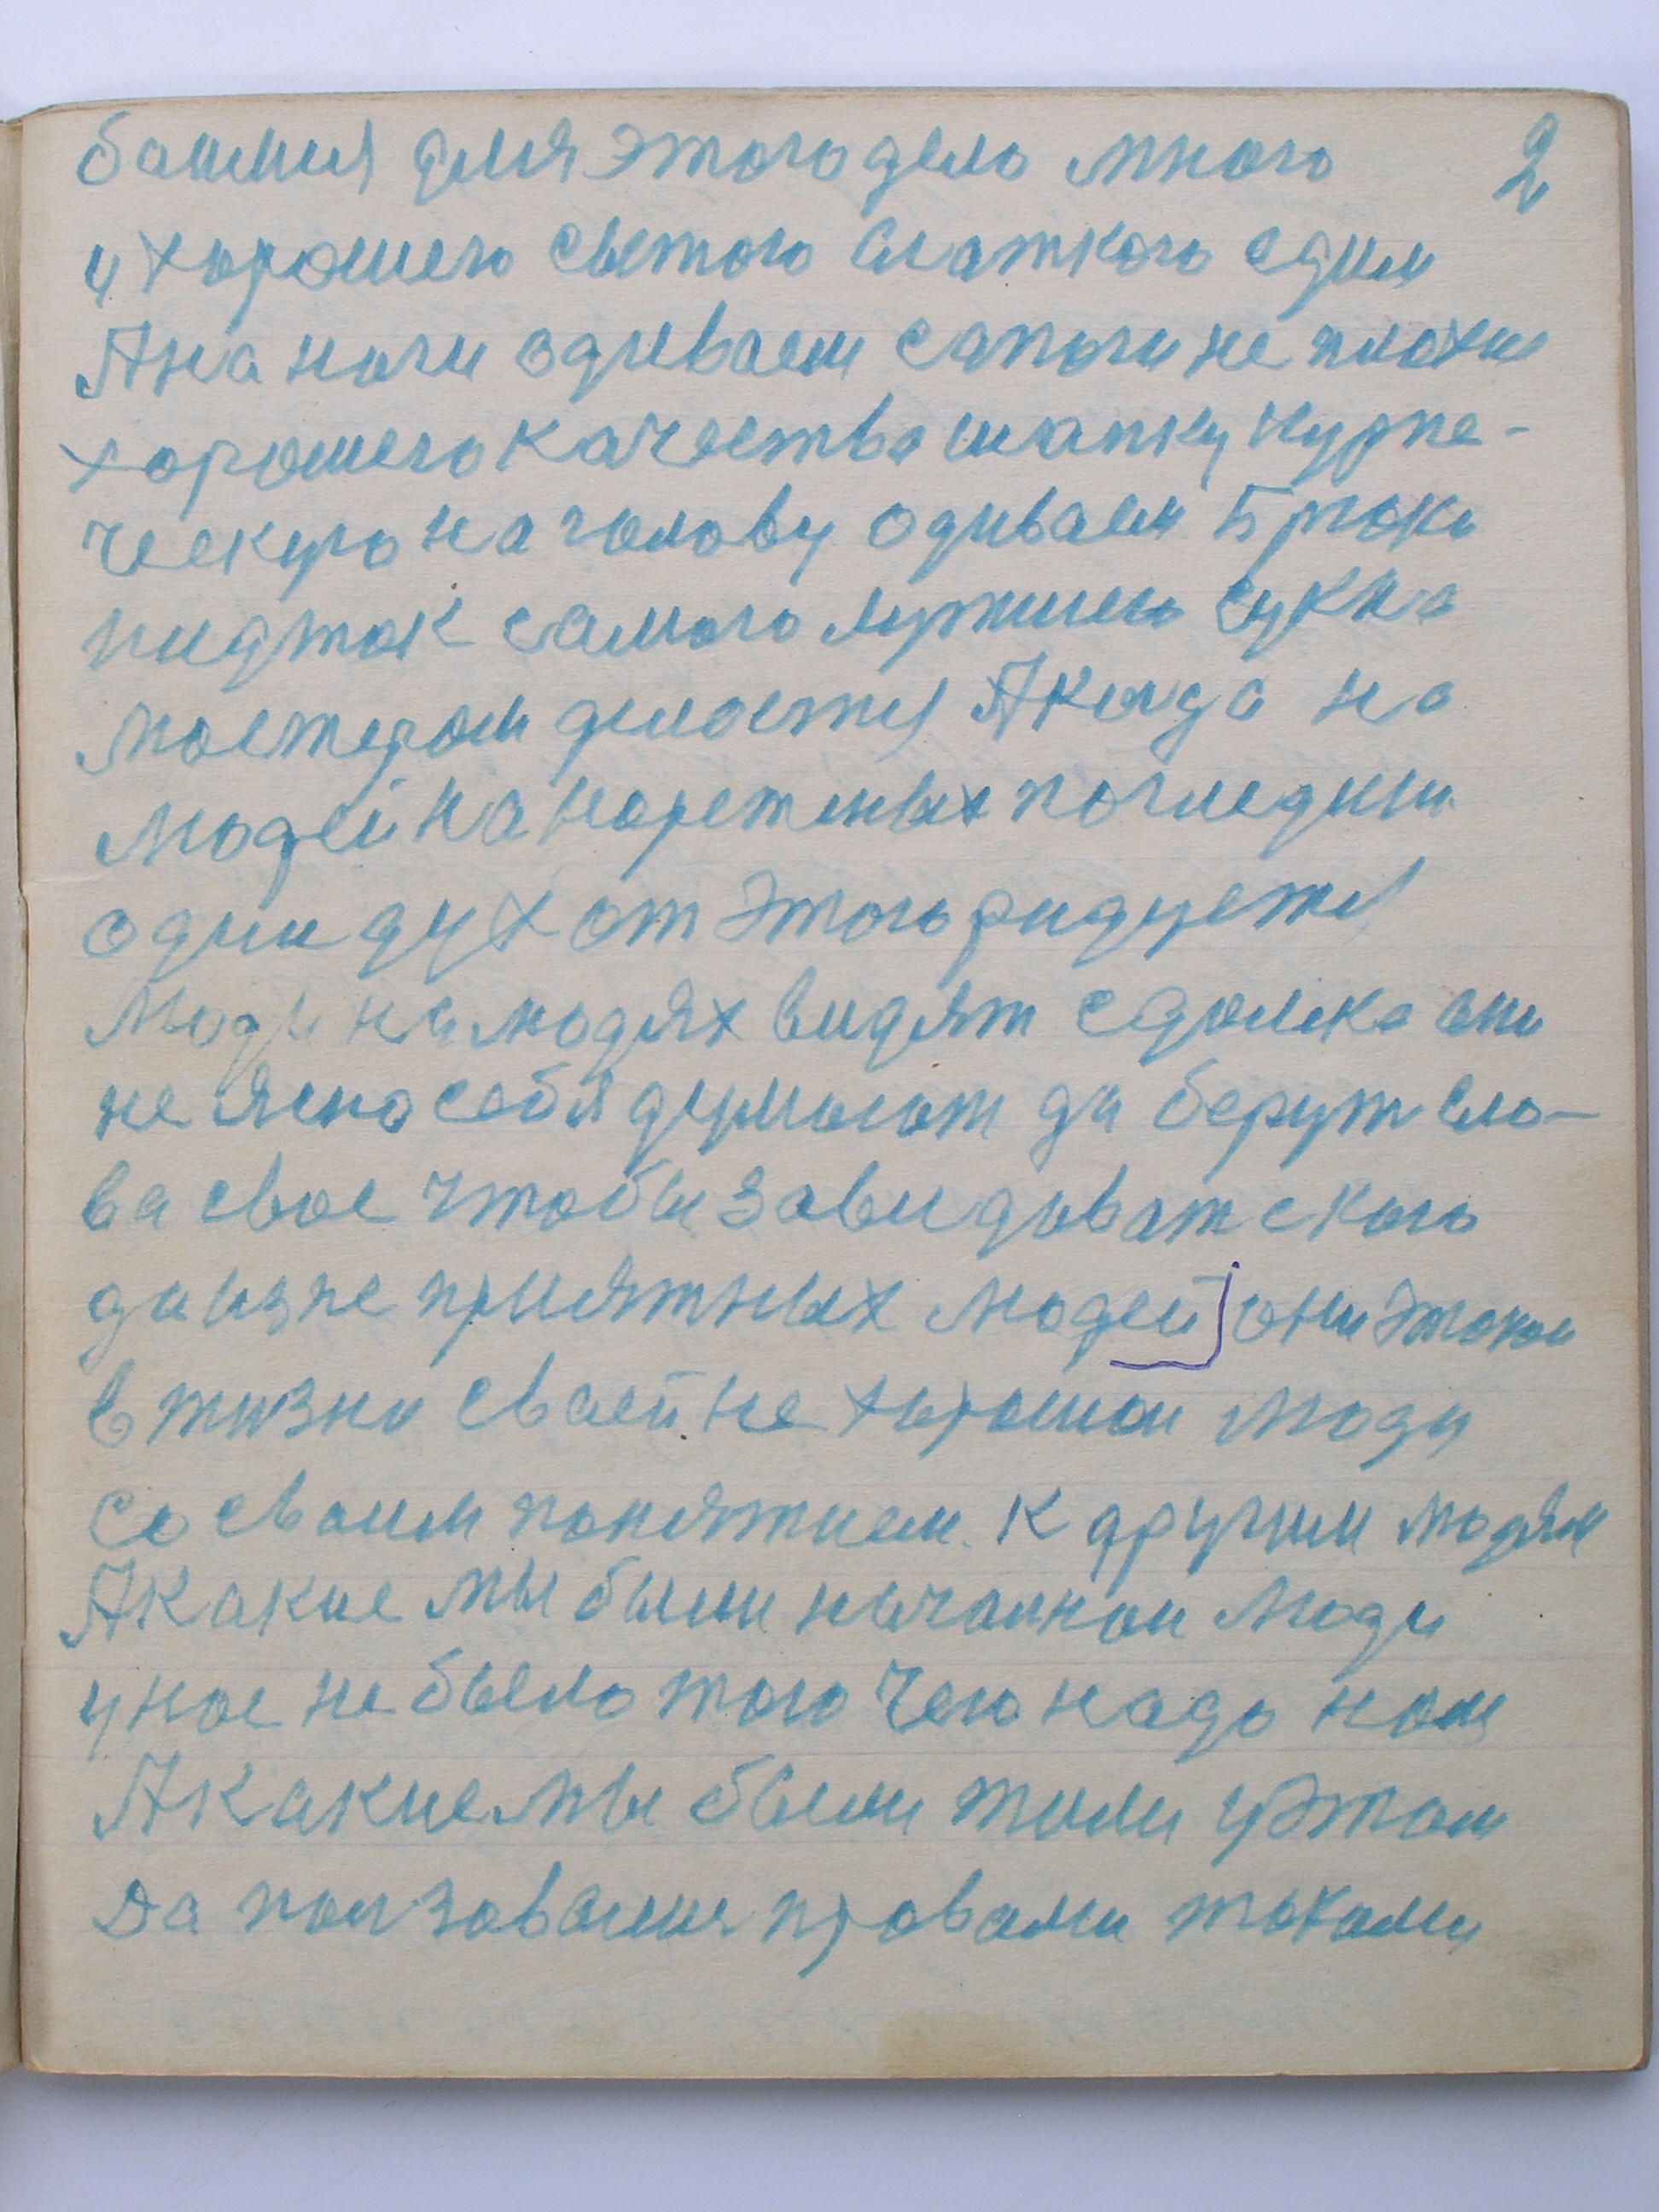 2
для этого дело много
и хорошего сытого слаткого едим
А на ноги одиваем сапоги не плохие
хорошего качества шапку купе-
ческую на голову одиваем Брюки
пиджак самого лутшего сукна
мастером делается А когда на
людей на нареженых погледиш
один дух от этого радуется
люди на людях видят сдалека они
не ясно себя думают да берут сло-
ва свое чтобы завидоват с кого
да из не приятных людей они этокои
в жизни сваей не хорошои люди
со своим понятием. К другим людям
А какие мы были началнои люди
у нас не было того чего надо нам
А какие мы были жили у этом
Да ползовалися правами такими